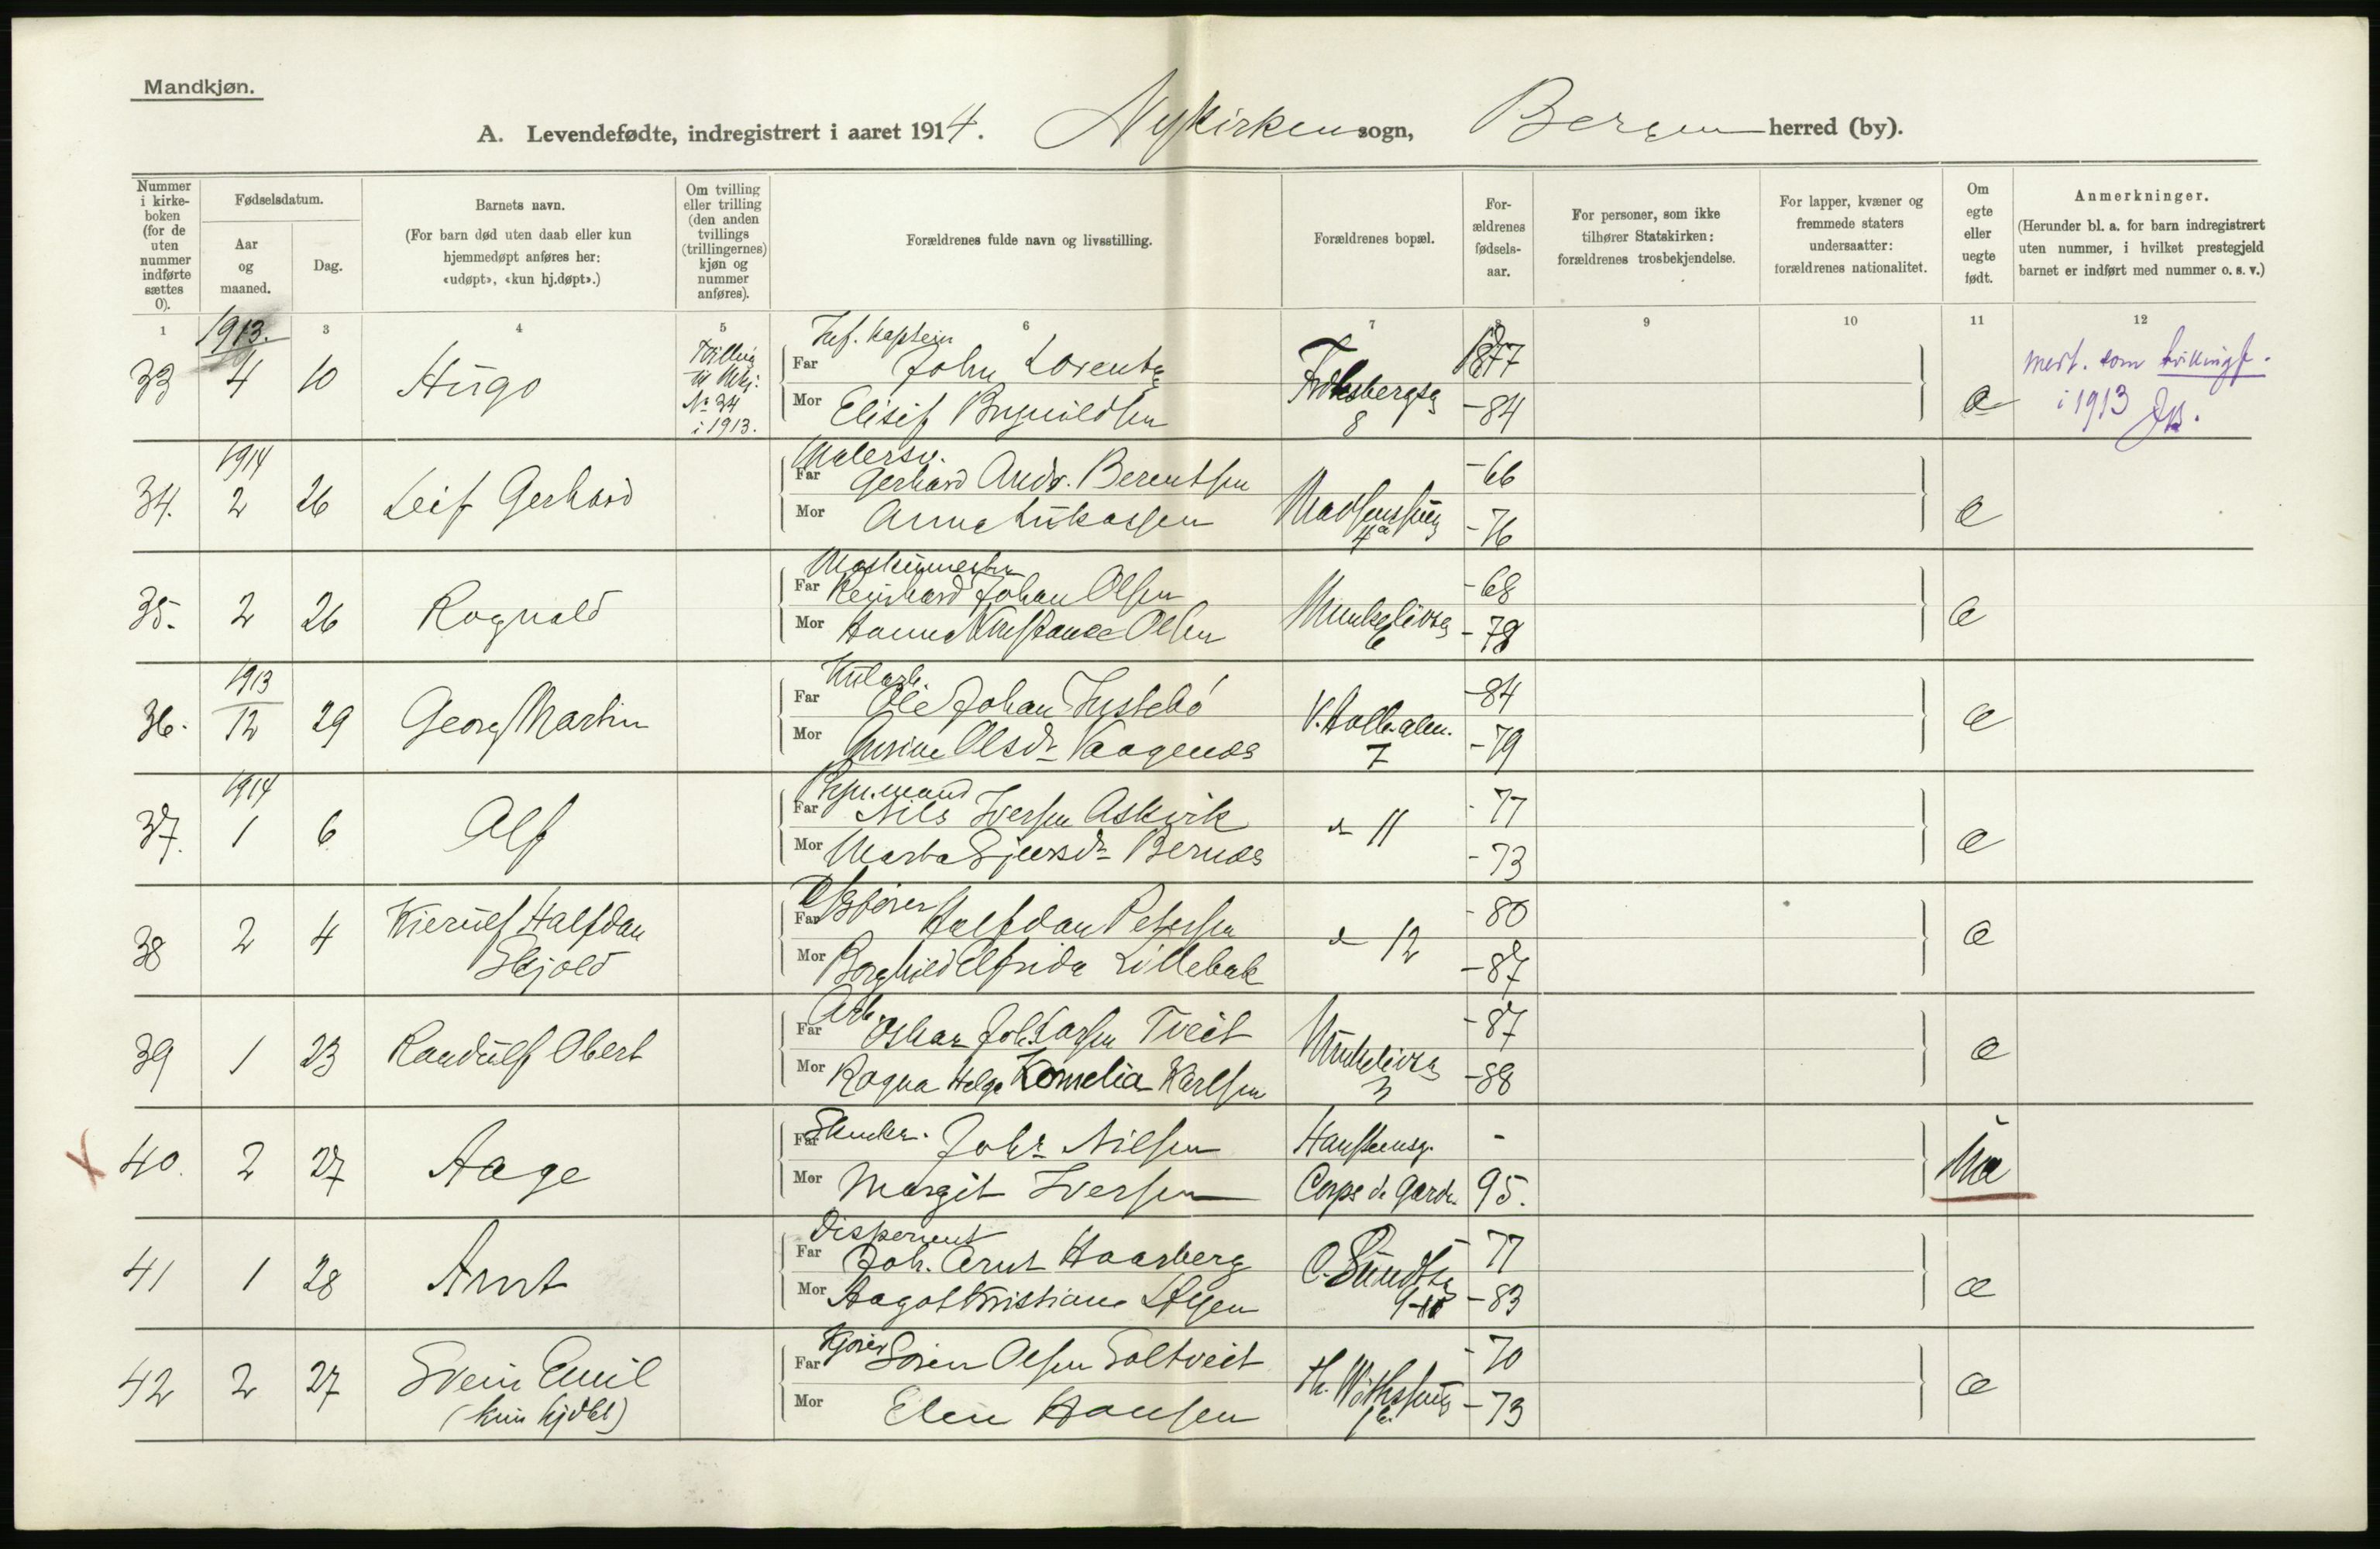 Mandkjøn.
A. Levendefødte, indregistrert i aaret 1914. Nykirken sogn, Bergen herred (by).
Nummer i kirke- boken (for de uten nummer indførte sættes 0).
Fødselsdatum.
Aar og maaned.
Dag.
Barnets navn.
(For barn død uten daab eller kun hjemmedøpt anføres her: «udøpt», «kun hj.døpt».)
Om tvilling eller trilling (den anden tvillings (trillingernes) kjøn og nummer anføres).
Forældrenes fulde navn og livsstilling.
Forældrenes bopæl.
For- ældrenes fødsels- aar.
For personer, som ikke tilhører Statskirken: forældrenes trosbekjendelse.
For lapper, kvæner og fremmede staters undersaatter: forældrenes nationalitet.
Om egte eller uegte født.
Anmerkninger.
(Herunder bl. a. for barn indregistrert uten nummer, i hvilket prestegjeld barnet er indført med nummer o. s. v.)
1 3 4 5 6 7 8 9 10 11 12
1913.
33 4 10 Hugo
Tvilling
No 34
i 1913.
Kaptein
Far John Lorentz
Mor Elisif Brynildsen
8
1877
-84
e
mest. som tvillingf.
i 1913
1914
34. 2 26 Leif Gerhard
Malersv.
Far Gerhard Andr. Berentsen
Mor Anna Lukassen
4a
-66
-76
e
35. 2 26 Ragnald
Maskinmester
Far Reinhard Johan Olsen
Mor Hanna Konstance Olsen
Munkelivsg
6
-68
-78
e
1913
36. 12 29 Georg Martin
Kularb.
Far Ole Johan Tystebø
Mor Olsdr Vaagenes
V. Holb.alm.
7
-84
-79
e
1914
37. 1 6 Alf
Far Nils Iversen Askvik
Mor Marta Gjersdr Bernes
do 11
-77
-73
e
38 2 4 Kierulf Halfdan
Skjold
Far Halfdan Petersen
Mor Borghild Elfrida Lillebak
do 12
-80
-87
e
39 1 23 Randulf Obert
Arb.
Far Oskar Joh. Larsen Tveit
Mor Ragna Helga Kornelia Karlsen
Munkelivsg
3
-87
-88
e
X 40. 2 27 Aage
Far Johs Nilsen
Mor Margit Iversen
Hansteensg.
Corps de Garde.
-
95.
Ue
41 1 28 Arnt
Disponent
Far Joh. Arnt Haarberg
Mor Aagot Kristiane
C. Sundtsg
77
-83
e
42 2 27 Svein Emil
(kun hjdbt)
Kjører
Far Søren Olsen Soltveit
Mor Elen Hansen
-70
-73
e